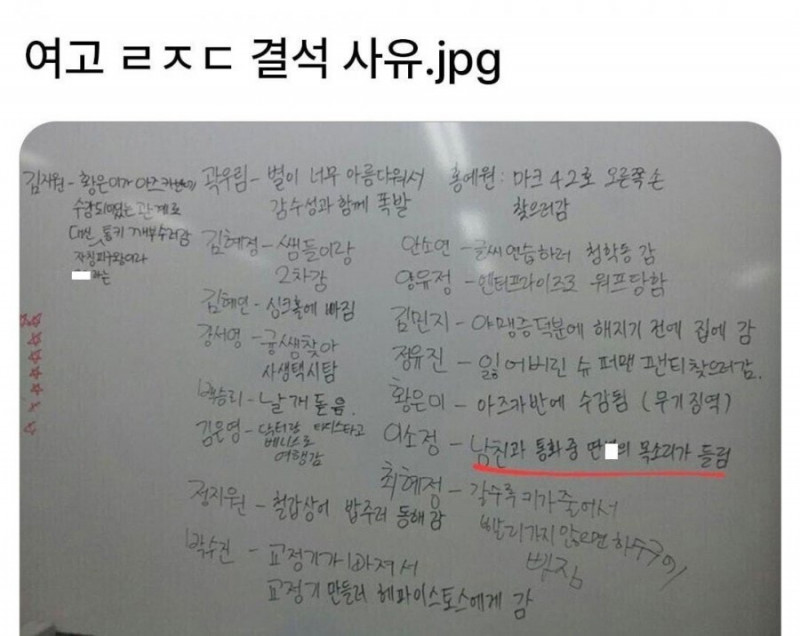 여고 ㄹㅈㄷ 결석 사유.jpg
김지원 - 황은이가 아즈카반에
수감되어있는 관계로
대신 통키 개부수러감
자칭피구왕이라
라는
곽우림 - 별이 너무 아름다워서
감수성과 함께 폭발
김혜정 - 쌤들이랑
2차감
김혜인 - 싱크홀에 빠짐
강서영 - 궁쌤찾아
사생택시탐
승리 - 날개 돋음
김은영 - 닥터랑 타디스타고
베니스로
여행감
정지원 - 철갑상어 밥주러 동해감
박수진 - 교정기가 빠져서
교정기 만들러 헤파이스토스에게 감
홍예원 : 마크 42호 오른쪽 손
찾으러감
안소연 - 글씨연습하러 청학동 감
양유정 - 엔터프라이즈로 워프당함
김민지 - 야맹증덕분에 해지기 전에 집에 감
정유진 - 잃어버린 슈퍼맨 팬티찾으러감.
황은미 - 아즈카반에 수감됨 (무기징역)
이소정 - 남친과 통화중 의 목소리가 들림
최혜정 - 갈수록 키가줄어서
빨리가지 않으면 하수구에
빠짐